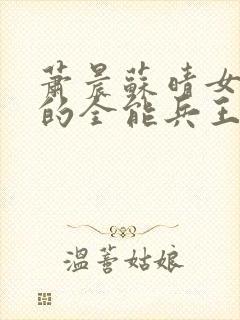 萧晨苏晴女
的全能兵王
温蓉姑娘